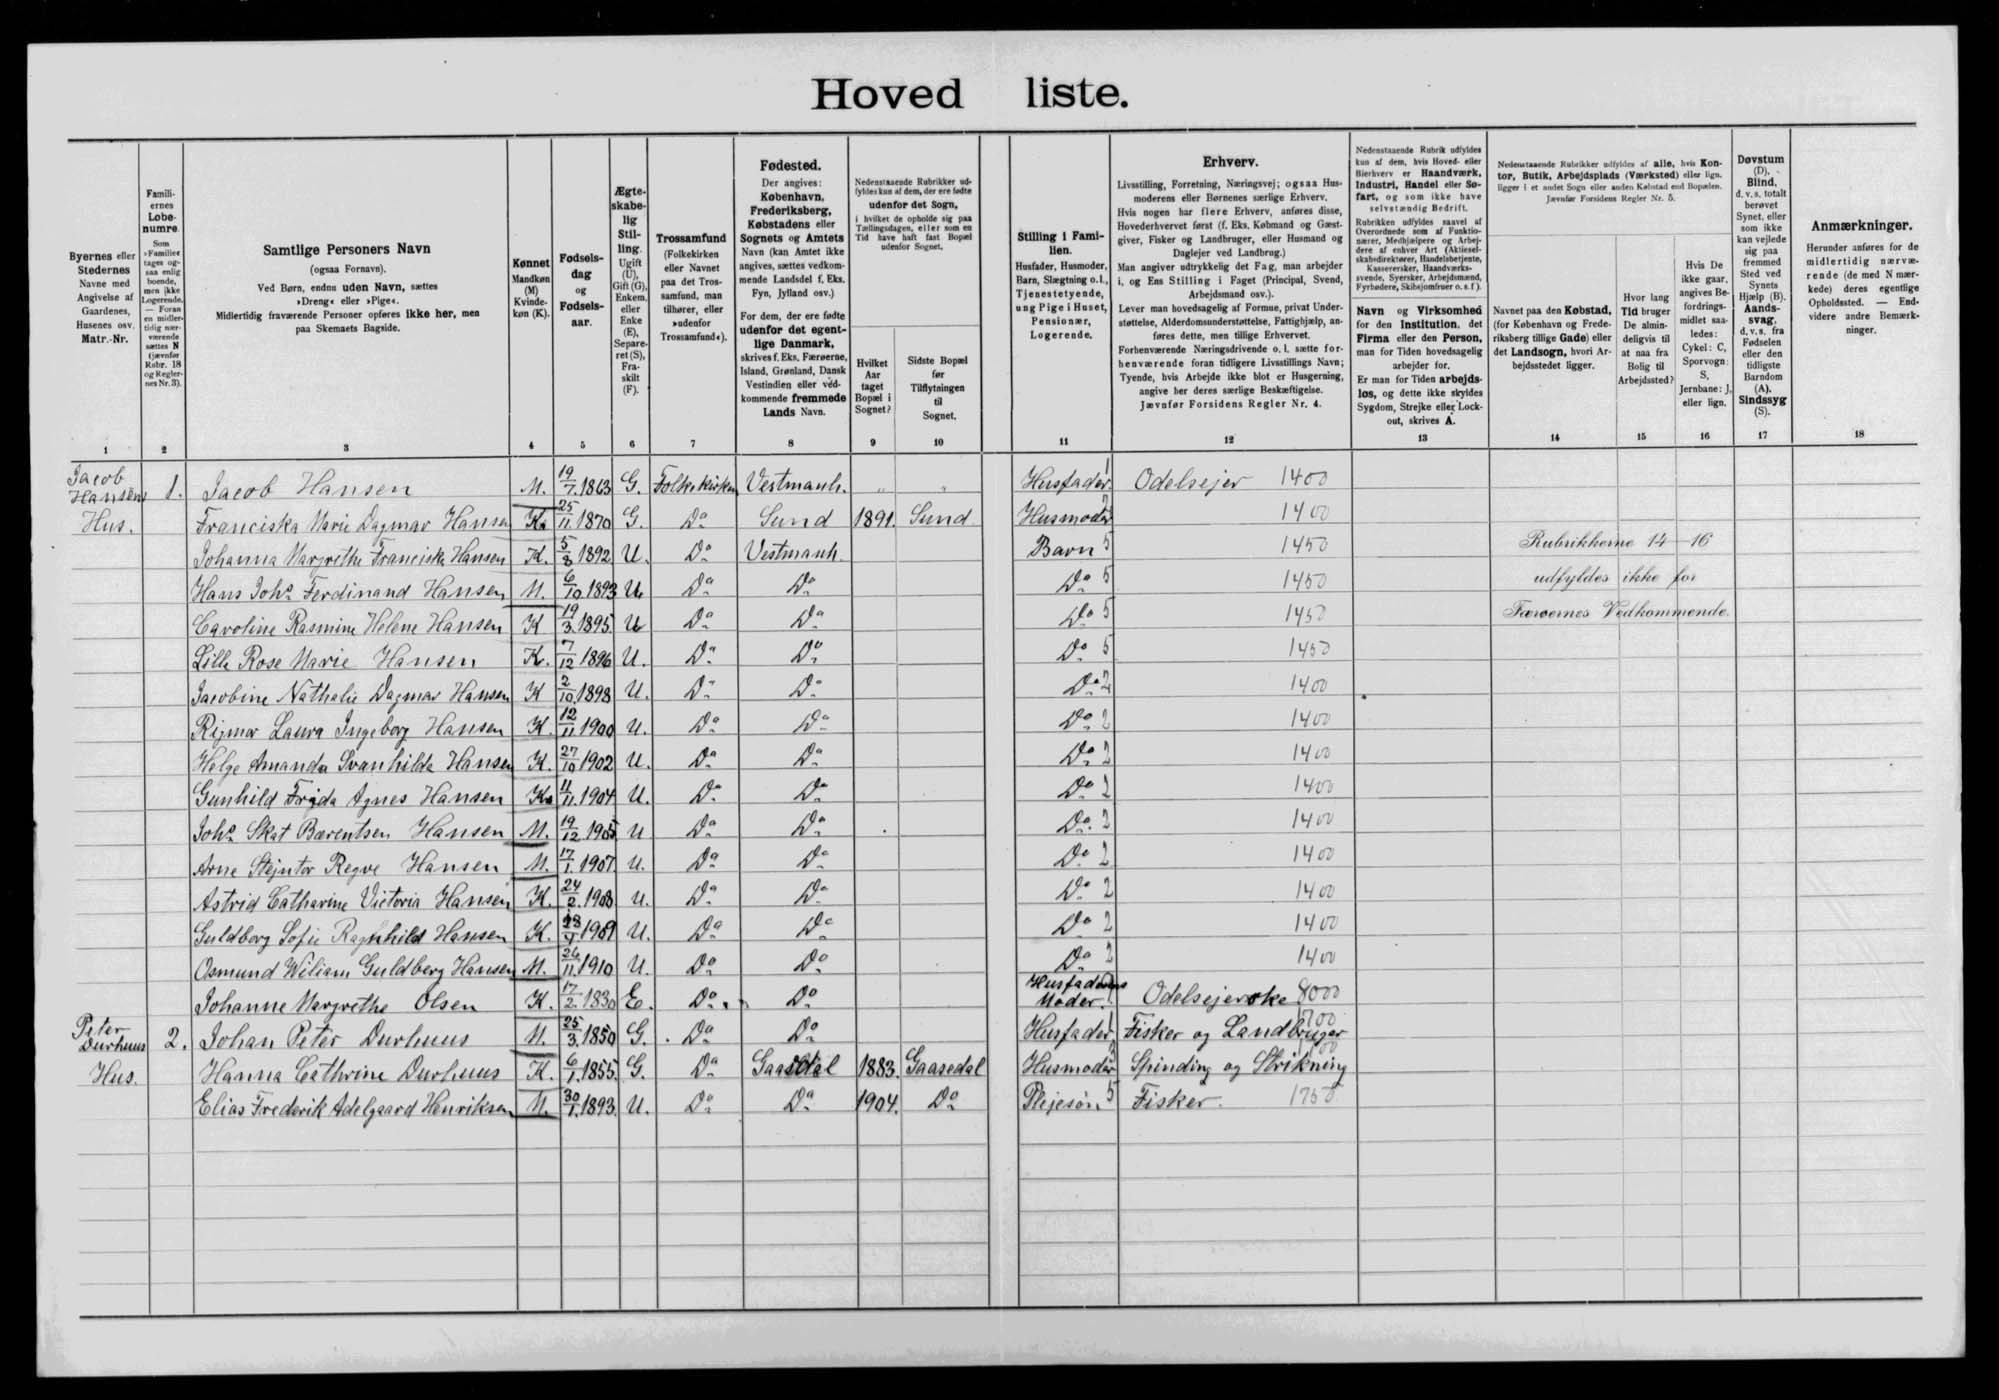 Hoved liste.
Byernes eller
Stedernes
Navne med
Angivelse af
Gaardenes,
Husenes osv.
Matr.-Nr.
Famili-
ernes
Løbe-
numre.
Som
»Familie«
tages og-
saa enlig
boende,
men ikke
Logerende.
— Foran
en midler-
tidig nær-
værende
sættes N
(jævnfør
Rubr. 18
og Regler-
nes Nr. 3).
Samtlige Personers Navn
(ogsaa Fornavn).
Ved Børn, endnu uden Navn, sættes
»Dreng« eller »Pige«.
Midlertidig fraværende Personer opføres ikke her, men
paa Skemaets Bagside.
Kønnet
Mandkøn
(M)
Kvinde-
køn (K).
Fødsels-
dag
og
Fødsels-
aar.
Ægte-
skabe-
lig
Stil-
ling.
Ugift
(U),
Gift (G),
Enkem.
eller
Enke
(E),
Separe-
ret (S),
Fra-
skilt
(F).
Trossamfund
(Folkekirken
eller Navnet
paa det Tros-
samfund, man
tilhører, eller
»udenfor
Trossamfund«).
Fødested.
Der angives:
København,
Frederiksberg,
Købstadens eller
Sognets og Amtets
Navn (kan Amtet ikke
angives, sættes vedkom-
mende Landsdel f. Eks.
Fyn, Jylland osv.)
For dem, der ere fødte
udenfor det egent-
lige Danmark,
skrives f. Eks. Færøerne,
Island, Grønland, Dansk
Vestindien eller ved-
kommende fremmede
Lands Navn.
Nedenstaaende Rubrikker ud-
fyldes kun af dem, der ere fødte
udenfor det Sogn,
i hvilket de opholde sig paa
Tællingsdagen, eller som en
Tid have haft fast Bopæl
udenfor Sognet.
Hvilket
Aar
taget
Bopæl i
Sognet?
Sidste Bopæl
før
Tilflytningen
til
Sognet.
Stilling i Fami-
lien.
Husfader, Husmoder,
Barn, Slægtning o. l.,
Tjenestetyende,
ung Pige i Huset,
Pensionær,
Logerende.
Erhverv.
Livsstilling, Forretning, Næringsvej; ogsaa Hus-
moderens eller Børnenes særlige Erhverv.
Hvis nogen har flere Erhverv, anføres disse,
Hovederhvervet først (f. Eks. Købmand og Gæst-
giver, Fisker og Landbruger, eller Husmand og
Daglejer ved Landbrug.)
Man angiver udtrykkelig det Fag, man arbejder
i, og Ens Stilling i Faget (Principal, Svend,
Arbejdsmand osv.).
Lever man hovedsagelig af Formue, privat Under-
støttelse, Alderdomsunderstøttelse, Fattighjælp, an-
føres dette, men tillige Erhvervet.
Forhenværende Næringsdrivende o. l. sætte for-
henværende foran tidligere Livsstillings Navn;
Tyende, hvis Arbejde ikke blot er Husgerning,
angive her deres særlige Beskæftigelse.
Jævnfør Forsidens Regler Nr. 4.
Nedenstaaende Rubrik udfyldes
kun af dem, hvis Hoved- eller
Bierhverv er Haandværk,
Industri, Handel eller Sø-
fart, og som ikke have
selvstændig Bedrift.
Rubrikken udfyldes saavel af
Overordnede som af Funktio-
nærer, Medhjælpere og Arbej-
dere af enhver Art (Aktiesel-
skabsdirektører, Handelsbetjente,
Kasserersker, Haandværks-
svende, Syersker, Arbejdsmænd,
Fyrbødere, Skibsjomfruer o. s. f.).
Navn og Virksomhed
for den Institution, det
Firma eller den Person,
man for Tiden hovedsagelig
arbejder for.
Er man for Tiden arbejds-
løs, og dette ikke skyldes
Sygdom, Strejke eller Lock-
out, skrives A.
Nedenstaaende Rubrikker udfyldes af alle, hvis Kon-
tor, Butik, Arbejdsplads (Værksted) eller lign.
ligger i et andet Sogn eller anden Købstad end Bopælen.
Jævnfør Forsidens Regler Nr. 5.
Navnet paa den Købstad,
(for København og Frede-
riksberg tillige Gade) eller
det Landsogn, hvori Ar-
bejdsstedet ligger.
Hvor lang
Tid bruger
De almin-
deligvis til
at naa fra
Bolig til
Arbejdssted?
Hvis De
ikke gaar,
angives Be-
fordrings-
midlet saa-
ledes:
Cykel: C,
Sporvogn:
S,
Jernbane: J,
eller lign.
Døvstum
(D).
Blind,
d. v. s. totalt
berøvet
Synet, eller
som ikke
kan vejlede
sig paa
fremmed
Sted ved
Synets
Hjælp (B).
Aands-
svag,
d. v. s. fra
Fødselen
eller den
tidligste
Barndom
(A).
Sindssyg
(S).
Anmærkninger.
Herunder anføres for de
midlertidig nærvæ-
rende (de med N mær-
kede) deres egentlige
Opholdssted. — End-
videre andre Bemærk-
ninger.
1 2 3 4 5 6 7 8 9 10 11 12 13 14 15 16 17 18
Jacob Hansens 1. Jacob Hansen M. 19/7 1863 G. Folkekirken Vestmanh. " " Husfader 1 Odelsejer 1400
Hus. Franciska Marie Dagmar Hansen K. 25/11 1870 G. Do Sund 1891. Sund Husmoder 2 1400
Johanna Margrethe Francisk Hansen K. 5/8 1892 U. Do Vestmanh. Barn 5 1450 Rubrikkerne 14-16
Hans Johs. Ferdinand Hansen M. 6/10 1893 U. Do Do Do 5 1450 udfyldes ikke for
Caroline Rasmine Helene Hansen K 19/3 1895. U Do Do Do 5 1450 Færøernes Vedkommende.
Lille Rose Marie Hansen K. 7/12 1896 U. Do Do Do 5 1450
Jacobine Nathalie Dagmar Hansen K 2/10 1898 U. Do Do Do 2 1400
Rigmor Laura Ingeborg Hansen K. 12/11 1900 U. Do Do Do 2 1400
Helge Amanda Svanhilda Hansen K. 27/10 1902 U. Do Do Do 2 1400
Gunhild Frida Agnes Hansen K. 11/11 1904 U. Do Do Do 2 1400
Johs. Skat Bærentsen Hansen M. 19/12 1905 U Do Do Do. 2 1400
Arne Stejntor Regve Hansen M. 17/1 1907. U. Do Do Do 2 1400
Astrid Catharine Victoria Hansen K. 24/2. 1908 U. Do Do Do 2 1400
Guldborg Sofie Ragnhild Hansen K. 1909 U. Do Do Do 2 1400
Osmund Wiliam Guldberg Hansen M. 26/11. 1910 U. Do Do Do 2 1400
Johanne Margrethe Olsen K. 17/2. 1830 E. Do Do Husfaderens Moder. Odelsejerske 8000
Peter Durhuus 2. Johan Peter Durhuus M. 25/3. 1850 G. Do Do Husfader 1 Fisker og Landbruger
Hus. Hanna Cathrine Durhuus K. 6/1. 1855. G. Do Gaasedal 1883. Gaasedal Husmoder 2 Spinding og Strikning
Elias Frederik Adelgaard Henriksen M. 30/1. 1893. U. Do Do 1904. Do Plejesøn 5 Fisker. 1750